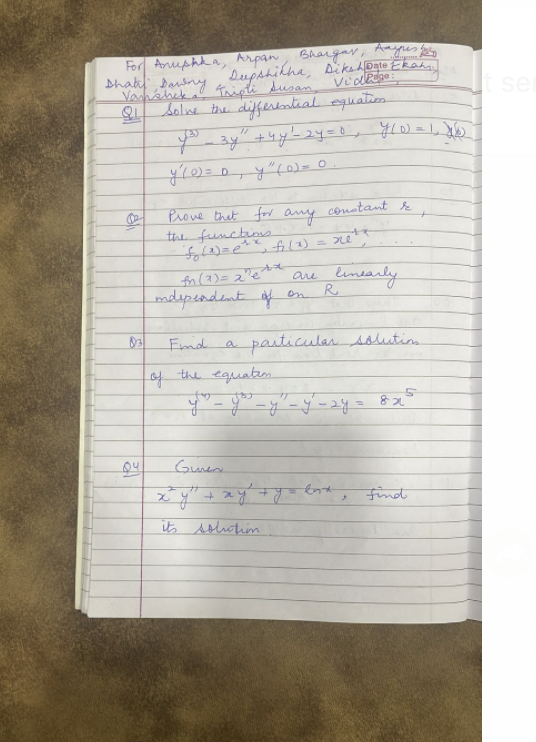 For Anushka, Arpan, Bhargav, Aayush
Date
Dhatri Danny Deepshikha, Diksha, Ekam,
Page:
Vanshika, Tripti Susan, Vidhi,
Q1 Solve the differential equation
y⁽³⁾ - 3y'' + 4y' - 2y = 0, y(0) = 1,
y'(0) = 0, y''(0) = 0.
Q2 Prove that for any constant r,
the functions
f₀(x) = e^{rx}, f₁(x) = xe^{rx}, ....
fn(x) = xⁿe^{rx} are linearly
independent on R
Q3 Find a particular solution
of the equation
y⁽⁴⁾ - y⁽³⁾ - y'' - y' - 2y = 8x⁵
Q4 Given
x²y'' + xy' + y = lnx, find
its solution.